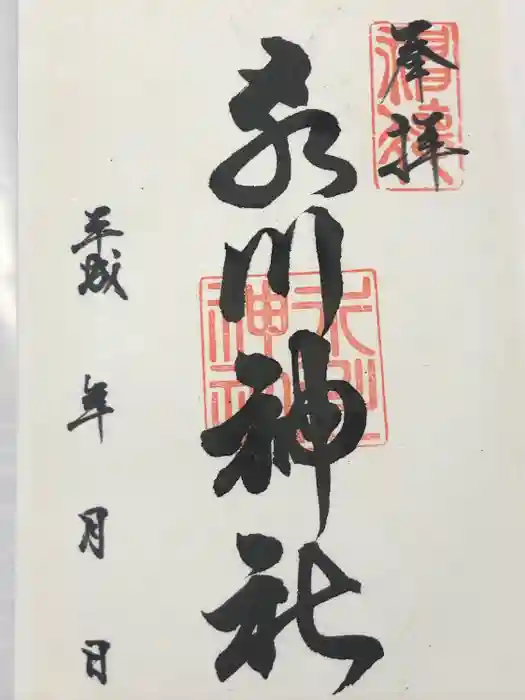 奉拝
氷川神社
氷川神社
平成 年 月 日